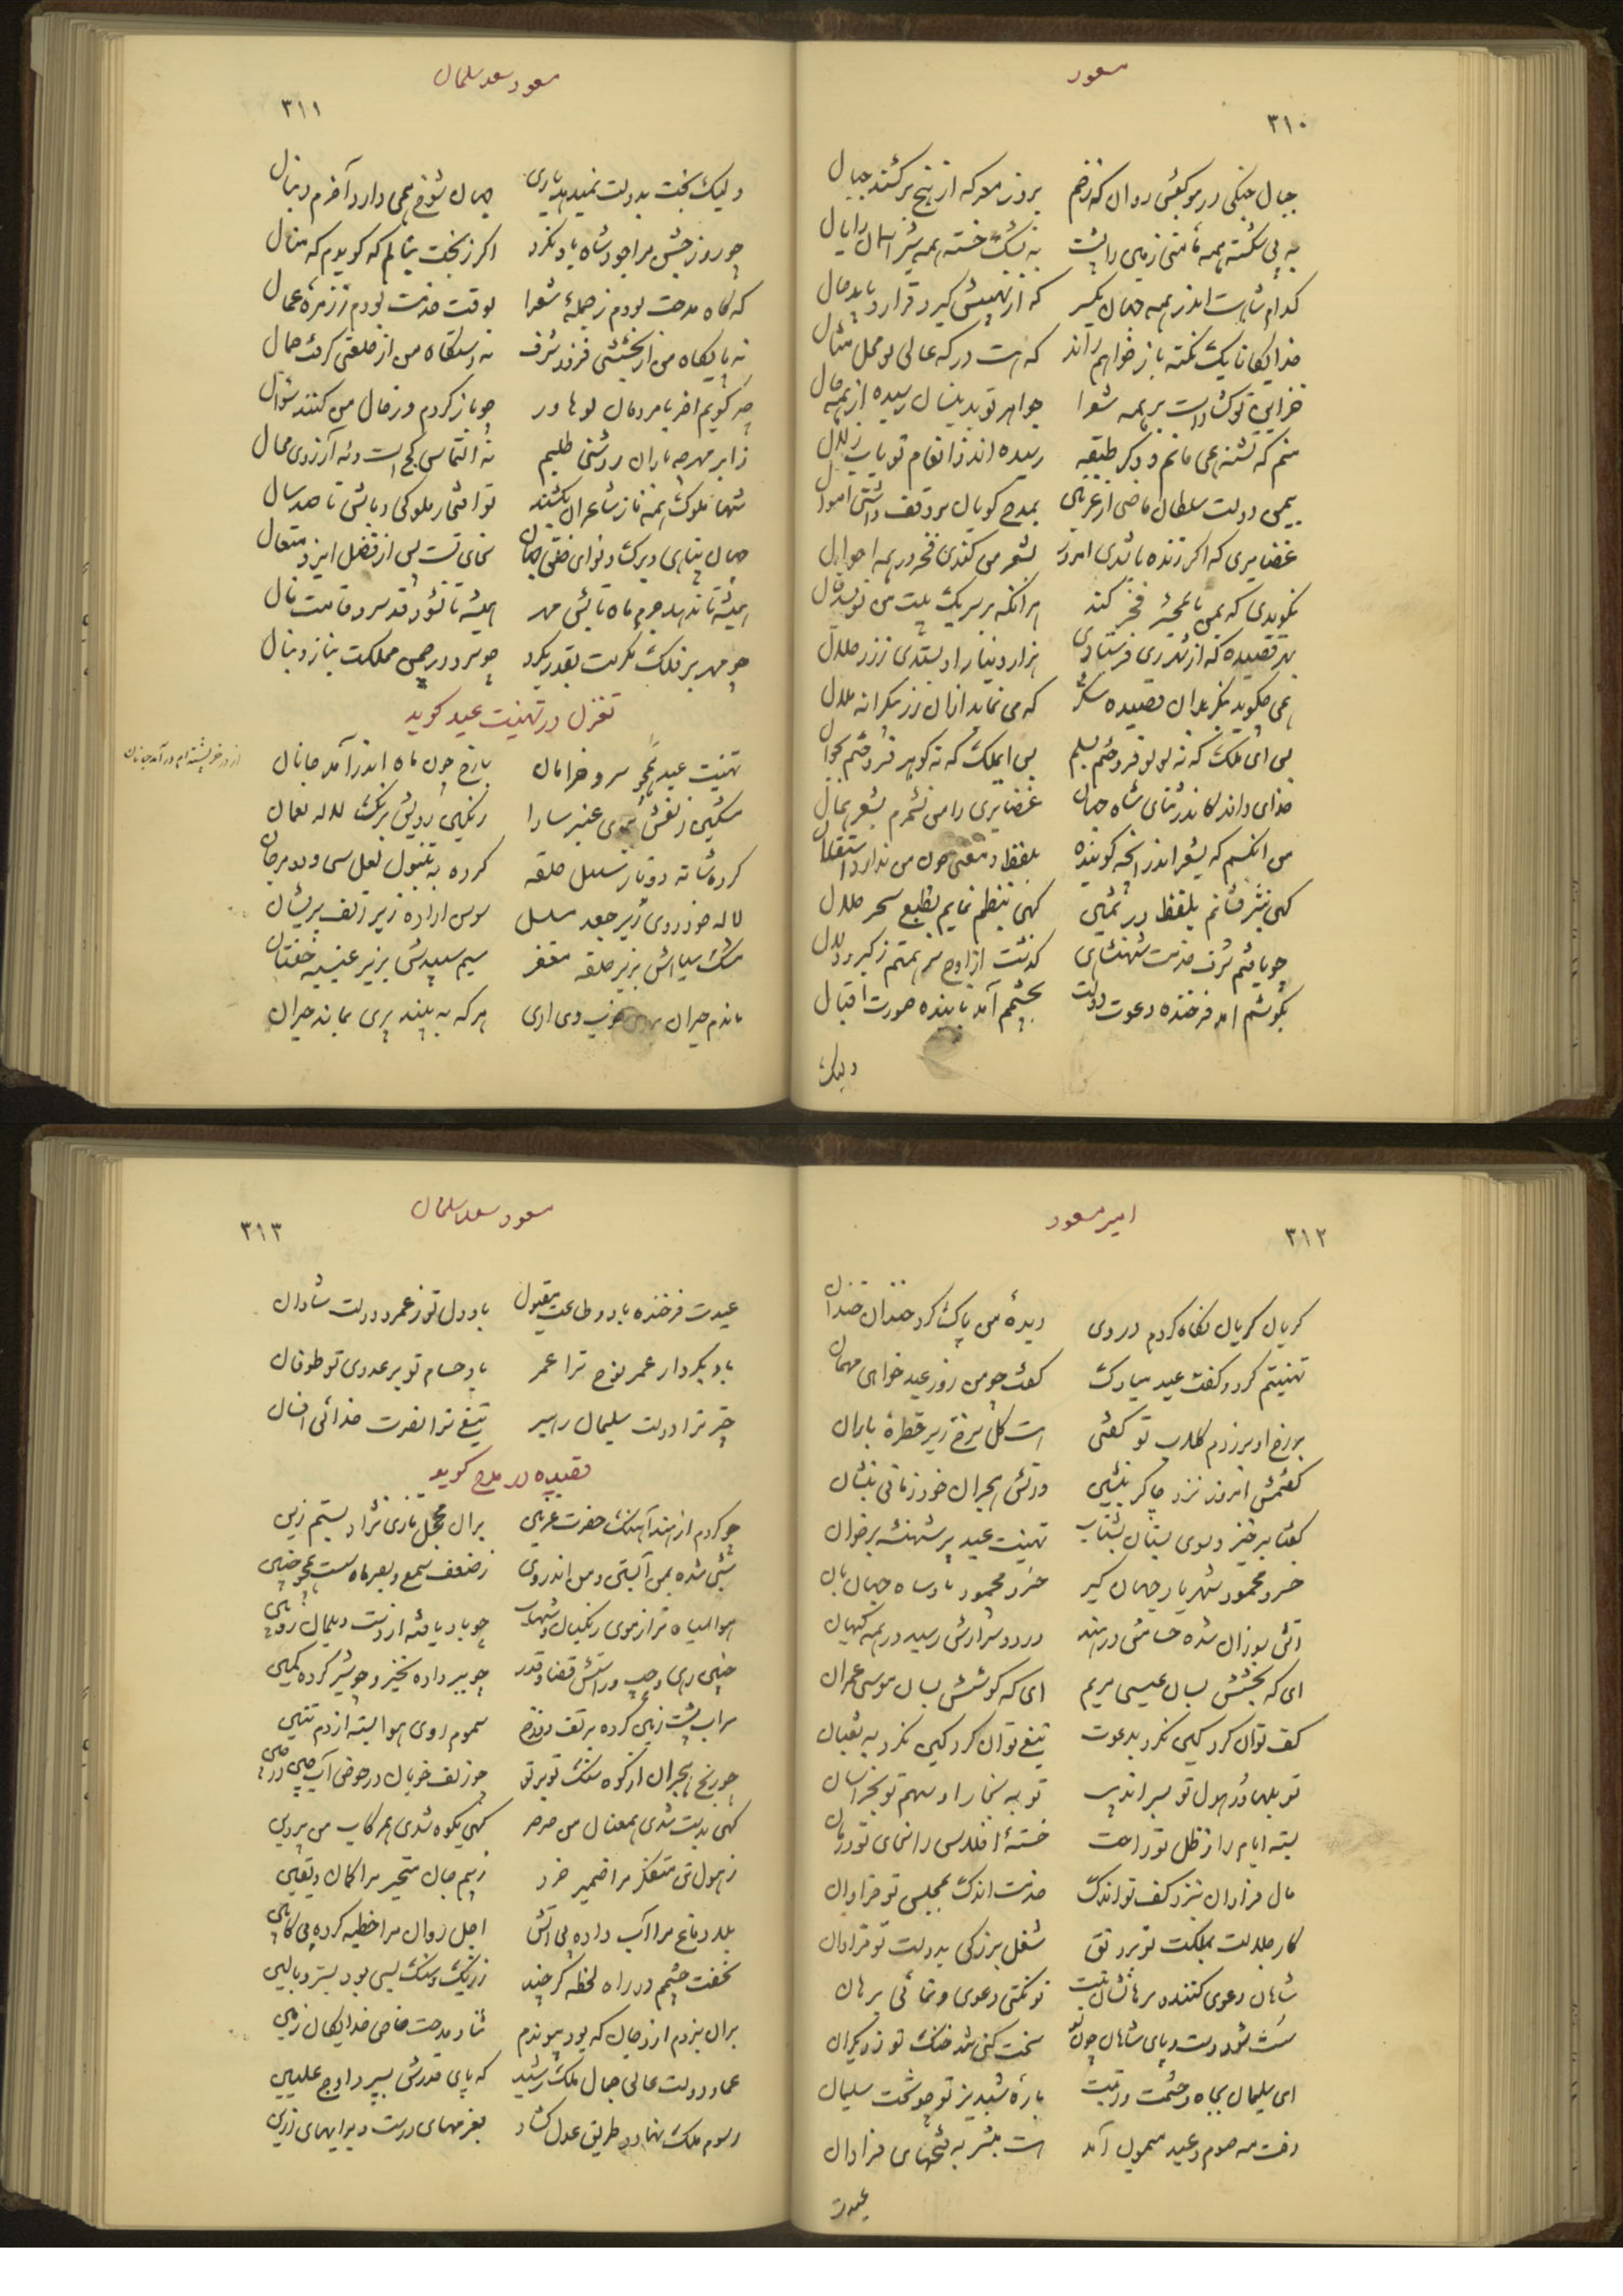 مسعود
۳۱۰
جبال جنگی در موکبش روان که زخم بروز معرکه از بیخ برکنند جبال
به پی شکسته همه متن زمین را پشت به نشک خسته همه شیر آسمان را یال
کدام شاه است اندر همه جهان یکسر که از نهیبش گیرد قرار و یابد هال
خدایگانا یک نکته باز خواهم راند که هست درگه عالی تو محل مثال
خزاین تو گشاده است بر همه شعرا جواهر تو بدیشان رسیده از همه حال
منم که تشنه همی مانم و دگر طبقه رسیده‌اند ز انعام تو بآب زلال
بیمن دولت سلطان ماضی از غزنین بمدح گویان بر وقف داشتی اموال
غضایری که اگر زنده باشدی امروز بشعر من کندی فخر در همه احوال
بگویدی که بمن تا بحشر فخر کند هر آنکه بر سر یک بیت من نویسد قال
بهر قصیده که از شهر ری فرستادی هزار دینار او بستدی ز زر حلال
همی چگوید بنگر بدان قصیده شکر که می نماید از آن زر بیکرانه ملال
بس ای ملک که نه لولو فروختم بسلم بس ای ملک که نه گوهر فروختم بجوال
خدای داند کاندر ثنای شاه جهان غضایری را می نشمرم بشعر همال
من آنکسم که بشعر اندر آنچه گوینده بلفظ و معنی چون من ندارد استقلال
گهی بنثر فشانم بلفظ در ثمین گهی بنظم نمایم بطبع سحر حلال
چو یافتم شرف خدمت شهنشاهی گذشت از اوج سر همتم ز کبر و دلال
بگوشم آمد فرخنده دعوت دولت بچشمم آمد تابنده صورت اقبال
ولیک
مسعود سعد سلمان
۳۱۱
ولیک بخت بدولت نمیدهد یاری جهان شوخ همی دارد آخرم دنبال
چو روز جشن مرا جود شاه یاد نکرد اگر ز بخت بنالم که گویدم که منال
که گاه مدحت بودم ز جملهٔ شعرا بوقت خدمت بودم ز زمرهٔ عمال
نه پایگاه من از بخششی فزود شرف نه دستگاه من از خلعتی گرفت جمال
چه گویم آخر با مردمان لوهاور چو بازگردم و ز حال من کنند سؤال
ز ابر مهر چه باران روشنی طلبم نه التماس کج است و نه آرزوی محال
شها ملوک همه ناز شاعران بکشند تو افتخار ملوکی و باش تا صد سال
جهان پناهی و برکش نوای خلق جهان سخای تست پس از فضل ایزد متعال
همیشه تا ندهد جرم ماه تابش مهر همیشه تا نشود قد سرو قامت نال
چو مهر بر فلک مکرمت بقدر بگرد چو سرو در چمن مملکت بناز و ببال
تغزل در تهنیت عید گوید
تهنیت عید همچو سرو خرامان با رخ چون ماه اندر آمد جانان
از در خرپشته‌ام در آمد جانان
مشکین زلفش ببوی عنبر سارا رنگین رویش برنگ لاله نعمان
کرده بشانه دو تا ز سنبل حلقه کرده به تنبول لعل سی و دو مرجان
لاله خود روی زیر جعد مسلسل سوسن آزاده زیر زلف پریشان
مشک سیاهش بزیر حلقه مغفر سیم سپیدش بزیر غیبه خفتان
ماندم حیران بروی خوب وی آری هر که به بیند پری بماند حیران
امیر مسعود
۳۱۲
گریان گریان نگاه کردم در وی دیدهٔ من پاک کرد خندان خندان
تهنیتم کرد و گفت عید مبارک گفت چو من روز عید خواهی مهمان
بر رخ او بر زدم گلاب تو گفتی است گل سرخ زیر قطرهٔ باران
گفتمش امروز نزد چاکر بنشین و آتش هجران خود زمانی بنشان
گفتا برخیز و سوی بستان بشتاب تهنیت عید بر شهنشه برخوان
خسرو محمود شهریار جهان گیر خسرو محمود پادشاه جهان بان
آتش سوزان شده حسامش در هند دود و شرارش رسید در همه گیهان
ای که بخشش بسان عیسی مریم ای که کوشش بسان موسی عمران
کف تو آن کرد کین نکرد بدعوت تیغ تو آن کرد کین نکرد به ثعبان
تو بلهاور هول تو بسراندیب تو به بخارا و سهم تو بخراسان
بسته ایام را ز ظل تو راحت خستهٔ افلاس را سخای تو درمان
مال فراوان بنزد کف تو اندک خدمت اندک بمجلس تو فراوان
کار جلالت بملکت تو برونق شغل بزرگی بدولت تو فراوان
شاهان دعوی کنند و برهانشان نیست تو نکنی دعوی و نمائی برهان
سست شود دست و پای شاهان چون تو سخت کنی تند خنگ تو ز دیگران
ای سلیمان بجاه و حشمت و رتبت بارهٔ شبدیز تو چو تخت سلیمان
رفت مه صوم و عید میمون آمد است مبشر به فتحهای فراوان
عیدت
مسعود سعد سلمان
۳۱۳
عیدت فرخنده باد و طاعت مقبول باد دل تو ز عمر و دولت شادان
باد بکردار عمر نوح ترا عمر باد حسام تو بر عدوی تو طوفان
چتر ترا دولت سلیمان رهبر تیغ ترا نصرت خدائی افسان
قصیده در مدح گوید
چو کردم از هند آهنگ حضرت غزنین بر آن محجل تازی نژاد بستم زین
شبی شده بمن آبستن و من اندر وی ز ضعف سمع و بصر مانده‌ست همچو جنین
هوا سیاه‌تر از موی زنگیان و شهاب چو باد یافته از دست دیلمان زوبین
چنین رهی و چپ و راستش قضا و قدر چو ببر داده بخیز و چو شیر کرده کمین
سراب پشت زمین کرده پر تف دوزخ سموم روی هوا بسته از دم تنین
چو رنج هجران از کوه سنگ تو بر تو چو زلف خوبان در حوض آب چین در چین
گهی بدشت شدی همعنان من صرصر گهی بکوه شدی هم رکاب من پروین
ز هول تن متفکر مرا ضمیر خرد ز بیم جان متحیر مرا گمان و یقین
بلا دماغ مرا آب داده بی آتش اجل روان مرا خطبه کرده بی کابین
نخفت چشمم در راه لحظهٔ گر چند ز ریگ و سنگ بسی بود بستر و بالین
بر آن ببردم از جان که بود پیوندم ثنا و مدحت خاص خدایگان زمین
عماد دولت عالی جمال ملک رشید که پای قدرش بسپرد اوج علیین
رسوم ملک نهاد و طریق عدل گشاد بعزمهای درست و برایهای رزین